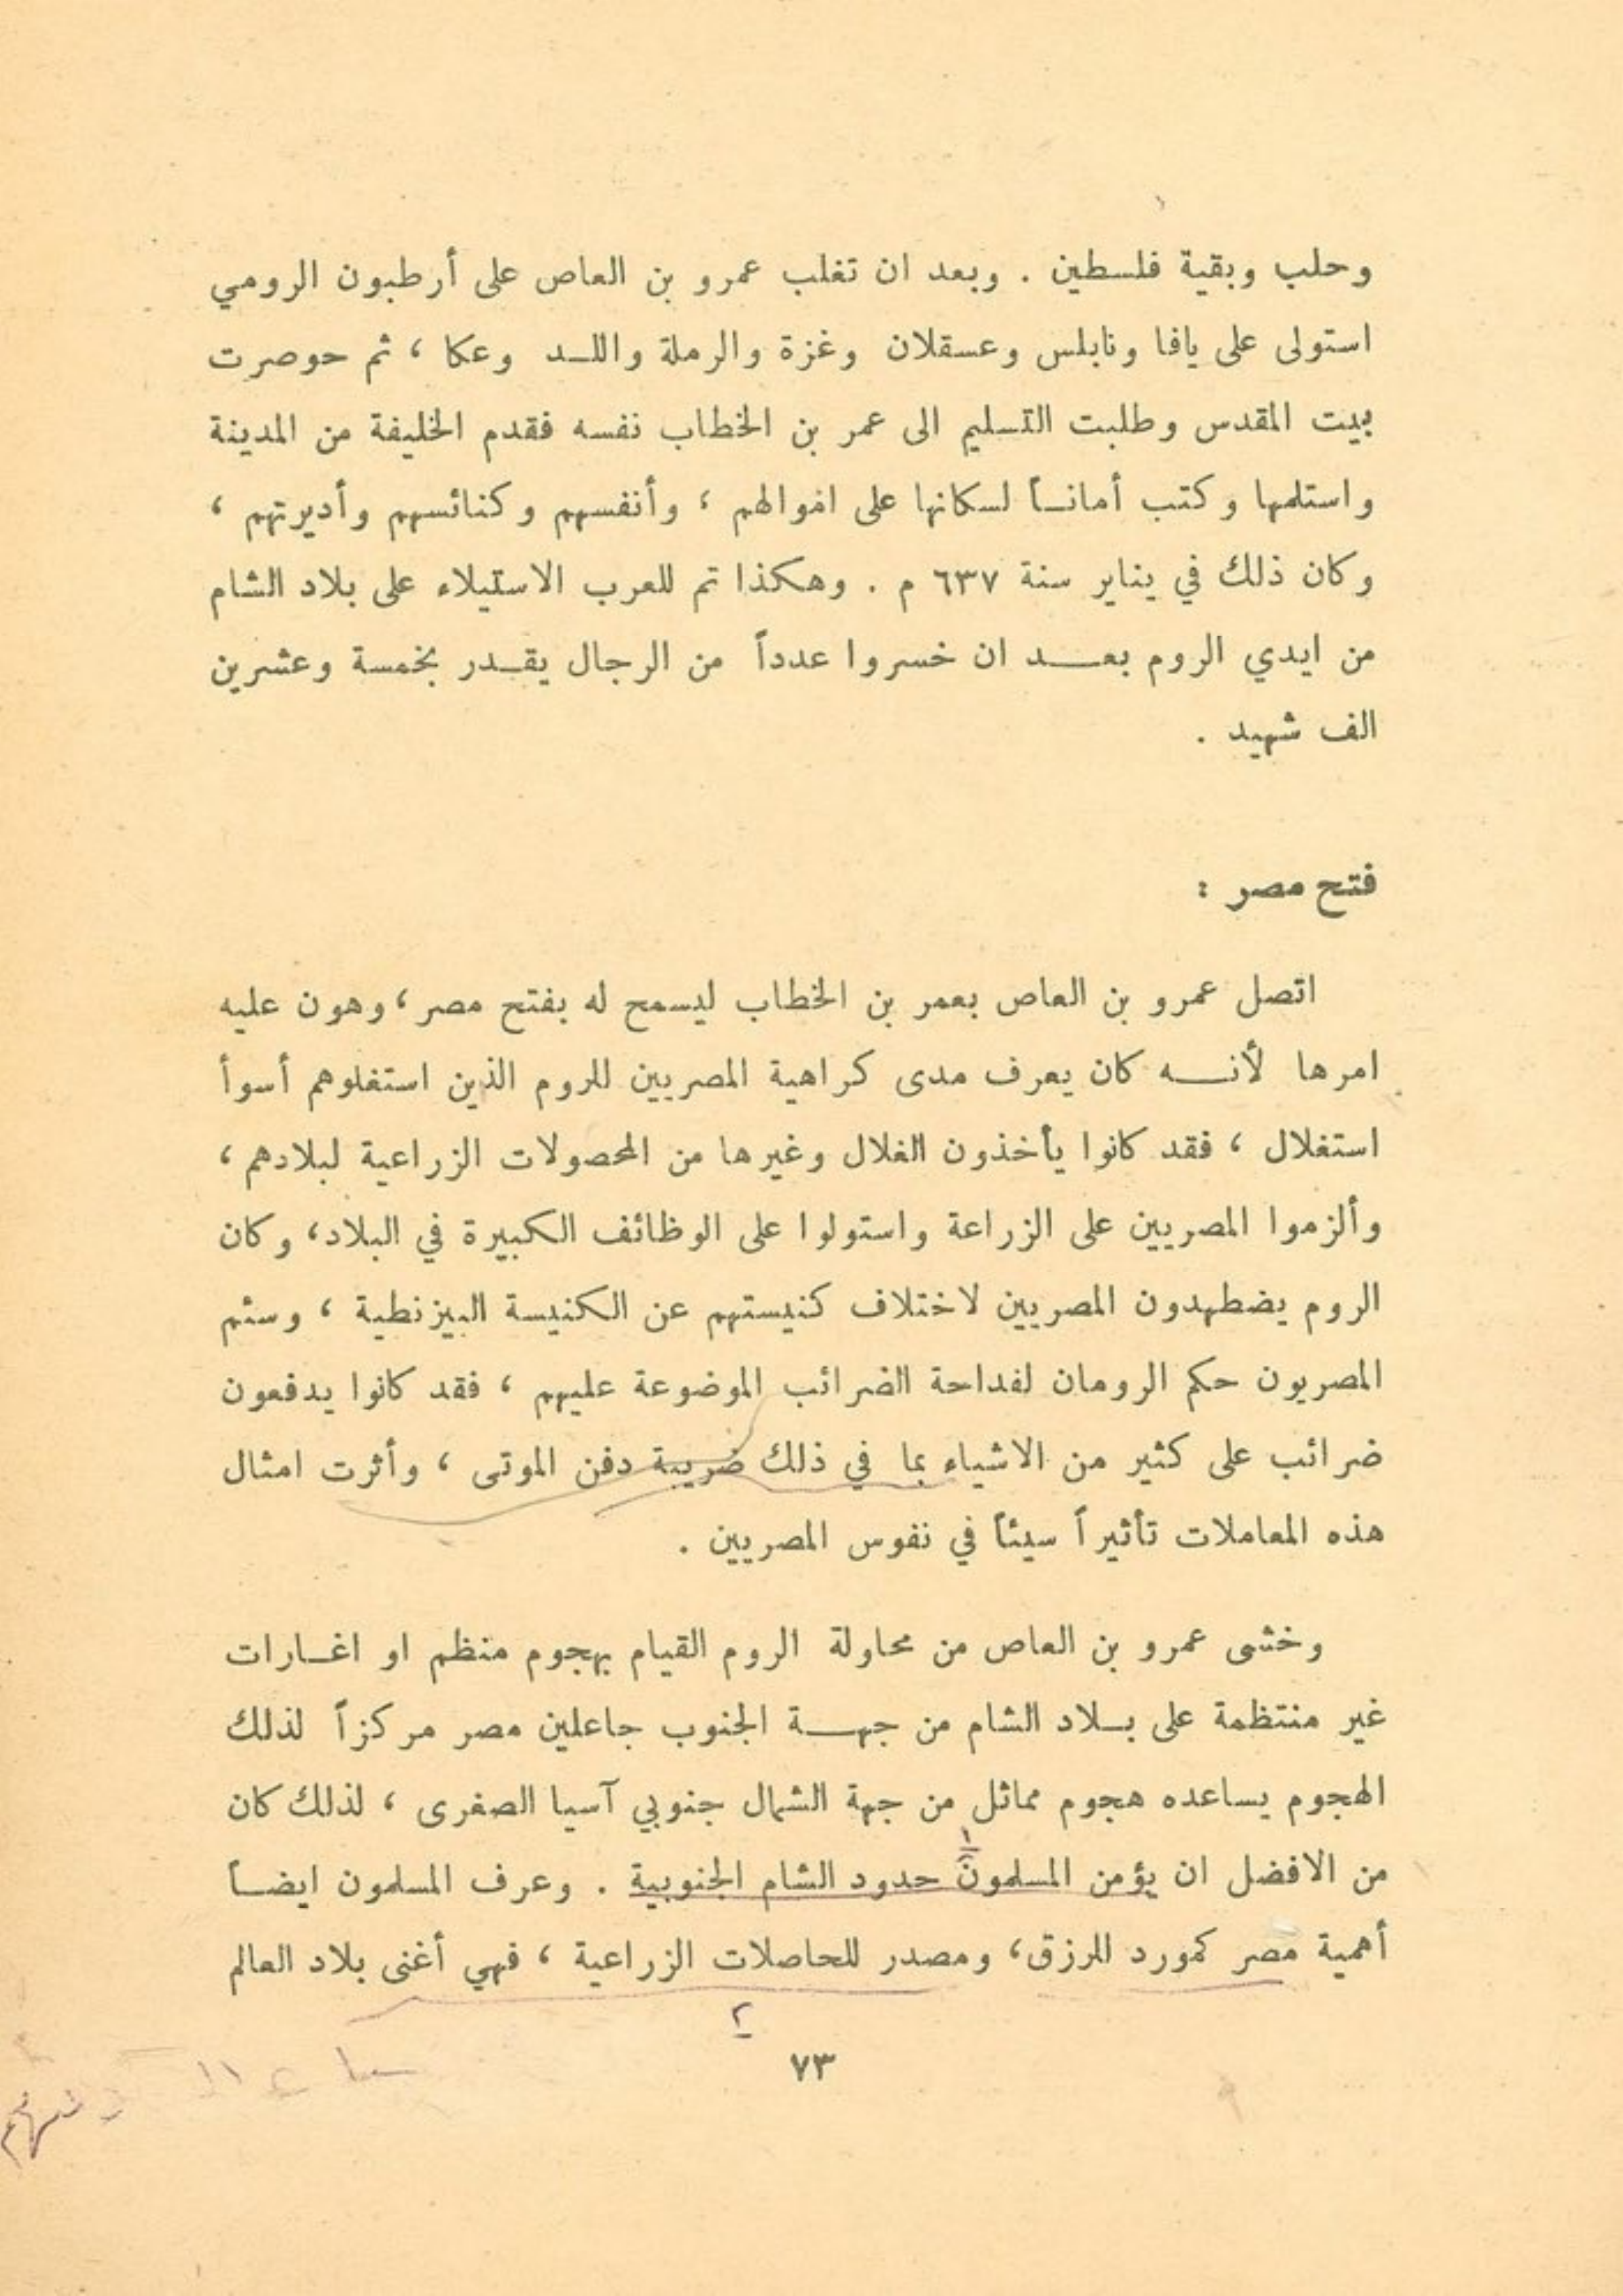 وحلب وبقية فلسطين . وبعد ان تغلب عمرو بن العاص على أرطبون الرومي
استولى على يافا ونابلس وعسقلان وغزة والرملة واللـد وعكا ، ثم حوصرت
بيت المقدس وطلبت التسليم الى عمر بن الخطاب نفسه فقدم الخليفة من المدينة
واستلمها وكتب أمانـاً لسكانها على اموالهم ، وأنفسهم وكنائسهم وأديرتهم ،
وكان ذلك في يناير سنة ٦٣٧ م . وهكذا تم للعرب الاستيلاء على بلاد الشام
من ايدي الروم بعـــد ان خسروا عدداً من الرجال يقـدر بخمسة وعشرين
الف شهيد .
فتح مصر :
اتصل عمرو بن العاص بعمر بن الخطاب ليسمح له بفتح مصر ، وهون عليه
امرها لأنـــه كان يعرف مدى كراهية المصريين للروم الذين استغلوهم أسوأ
استغلال ، فقد كانوا يأخذون الغلال وغيرها من المحصولات الزراعية لبلادهم ،
وألزموا المصريين على الزراعة واستولوا على الوظائف الكبيرة في البلاد ، وكان
الروم يضطهدون المصريين لاختلاف كنيستهم عن الكنيسة البيزنطية ، وسئم
المصريون حكم الرومان لفداحة الضرائب الموضوعة عليهم ، فقد كانوا يدفعون
ضرائب على كثير من الاشياء بما في ذلك ضريبة دفن الموتى ، وأثرت امثال
هذه المعاملات تأثيراً سيئاً في نفوس المصريين .
وخشى عمرو بن العاص من محاولة الروم القيام بهجوم منظم او اغـارات
غير منتظمة على بـلاد الشام من جهـــة الجنوب جاعلين مصر مركزاً لذلك
الهجوم يساعده هجوم مماثل من جهة الشمال جنوبي آسيا الصغرى ، لذلك كان
١
من الافضل ان يؤمن المسلمون حدود الشام الجنوبية . وعرف المسلمون ايضـاً
أهمية مصر كمورد للرزق ، ومصدر للحاصلات الزراعية ، فهي أغنى بلاد العالم
٢
٧٣